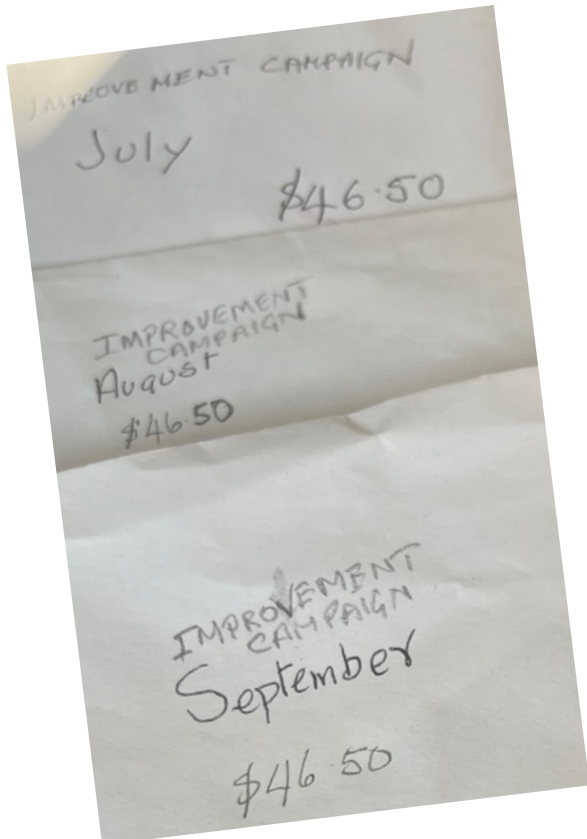 IMPROVEMENT CAMPAIGN
July
$46.50
IMPROVEMENT
CAMPAIGN
August
$46.50
IMPROVEMENT
CAMPAIGN
September
$46.50